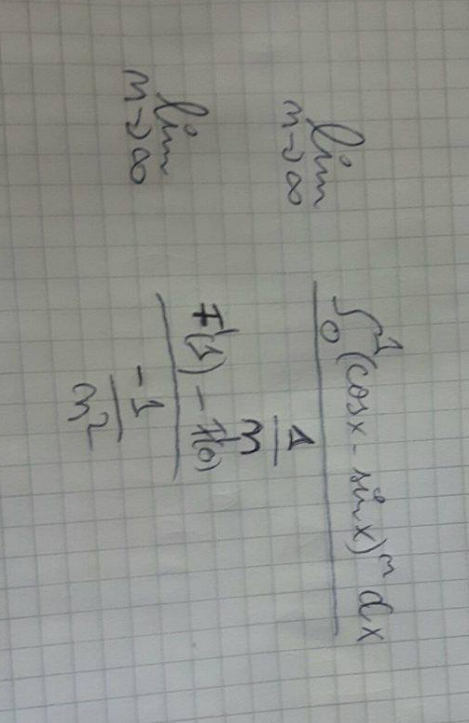 lim n→∞ ∫₀¹ (cosx - sin x)ⁿ dx / (1/n)
lim n→∞ (F'(1) - f(0)) / (-1/n²)